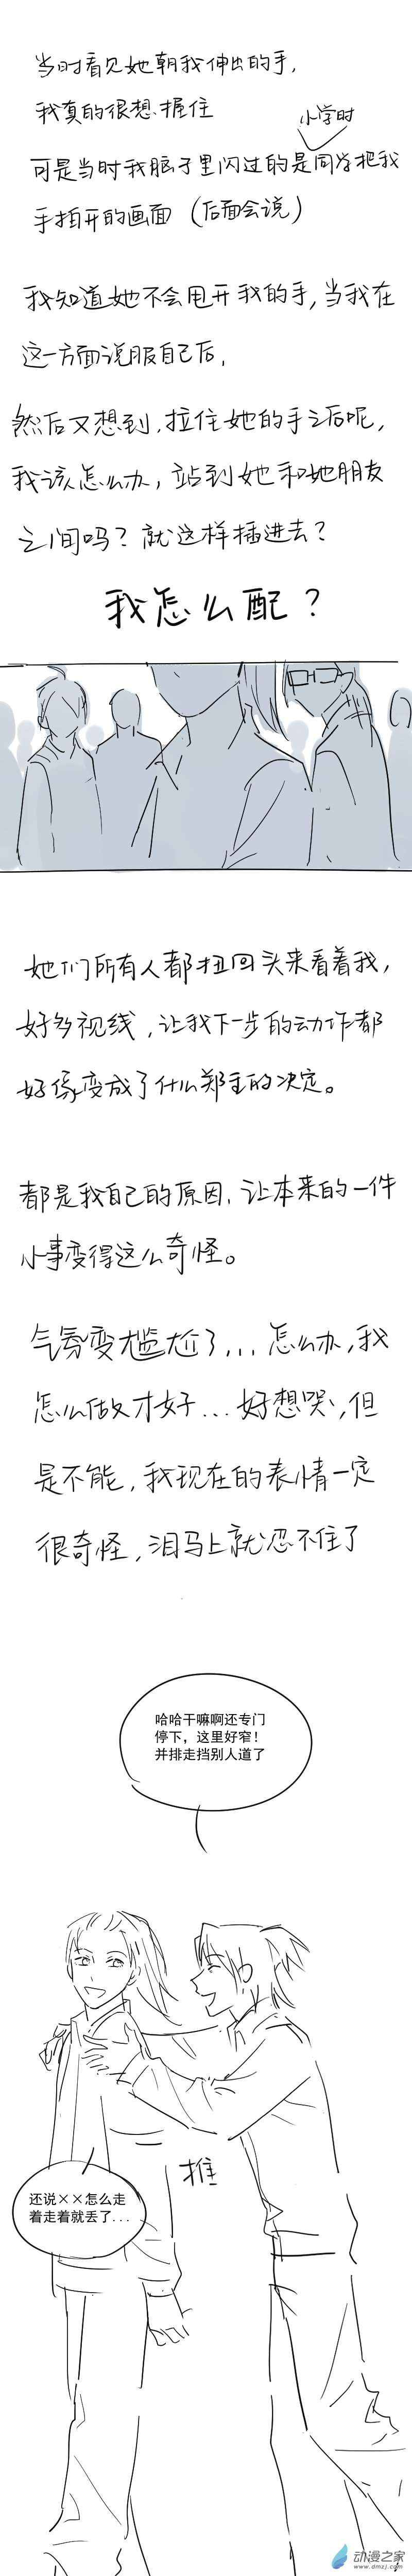 当时看见她朝我伸出的手，
我真的很想握住
小学时
可是当时我脑子里闪过的是同学把我
手拍开的画面（后面会说）
我知道她不会甩开我的手，当我在
这一方面说服自己后，
然后又想到，拉住她的手之后呢，
我该怎么办，站到她和她朋友
之间吗？就这样插进去？
我怎么配？
她们所有人都扭回头来看着我，
好多视线，让我下一步的动作都
好像变成了什么郑重的决定。
都是我自己的原因，让本来的一件
小事变得这么奇怪。
气氛变尴尬了...怎么办，我
怎么做才好...好想哭，但
是不能，我现在的表情一定
很奇怪，泪马上就忍不住了
哈哈干嘛啊还专门
停下，这里好窄！
并排走挡别人道了
推
还说××怎么走
着走着就丢了...
动漫之家
www.dmzj.com